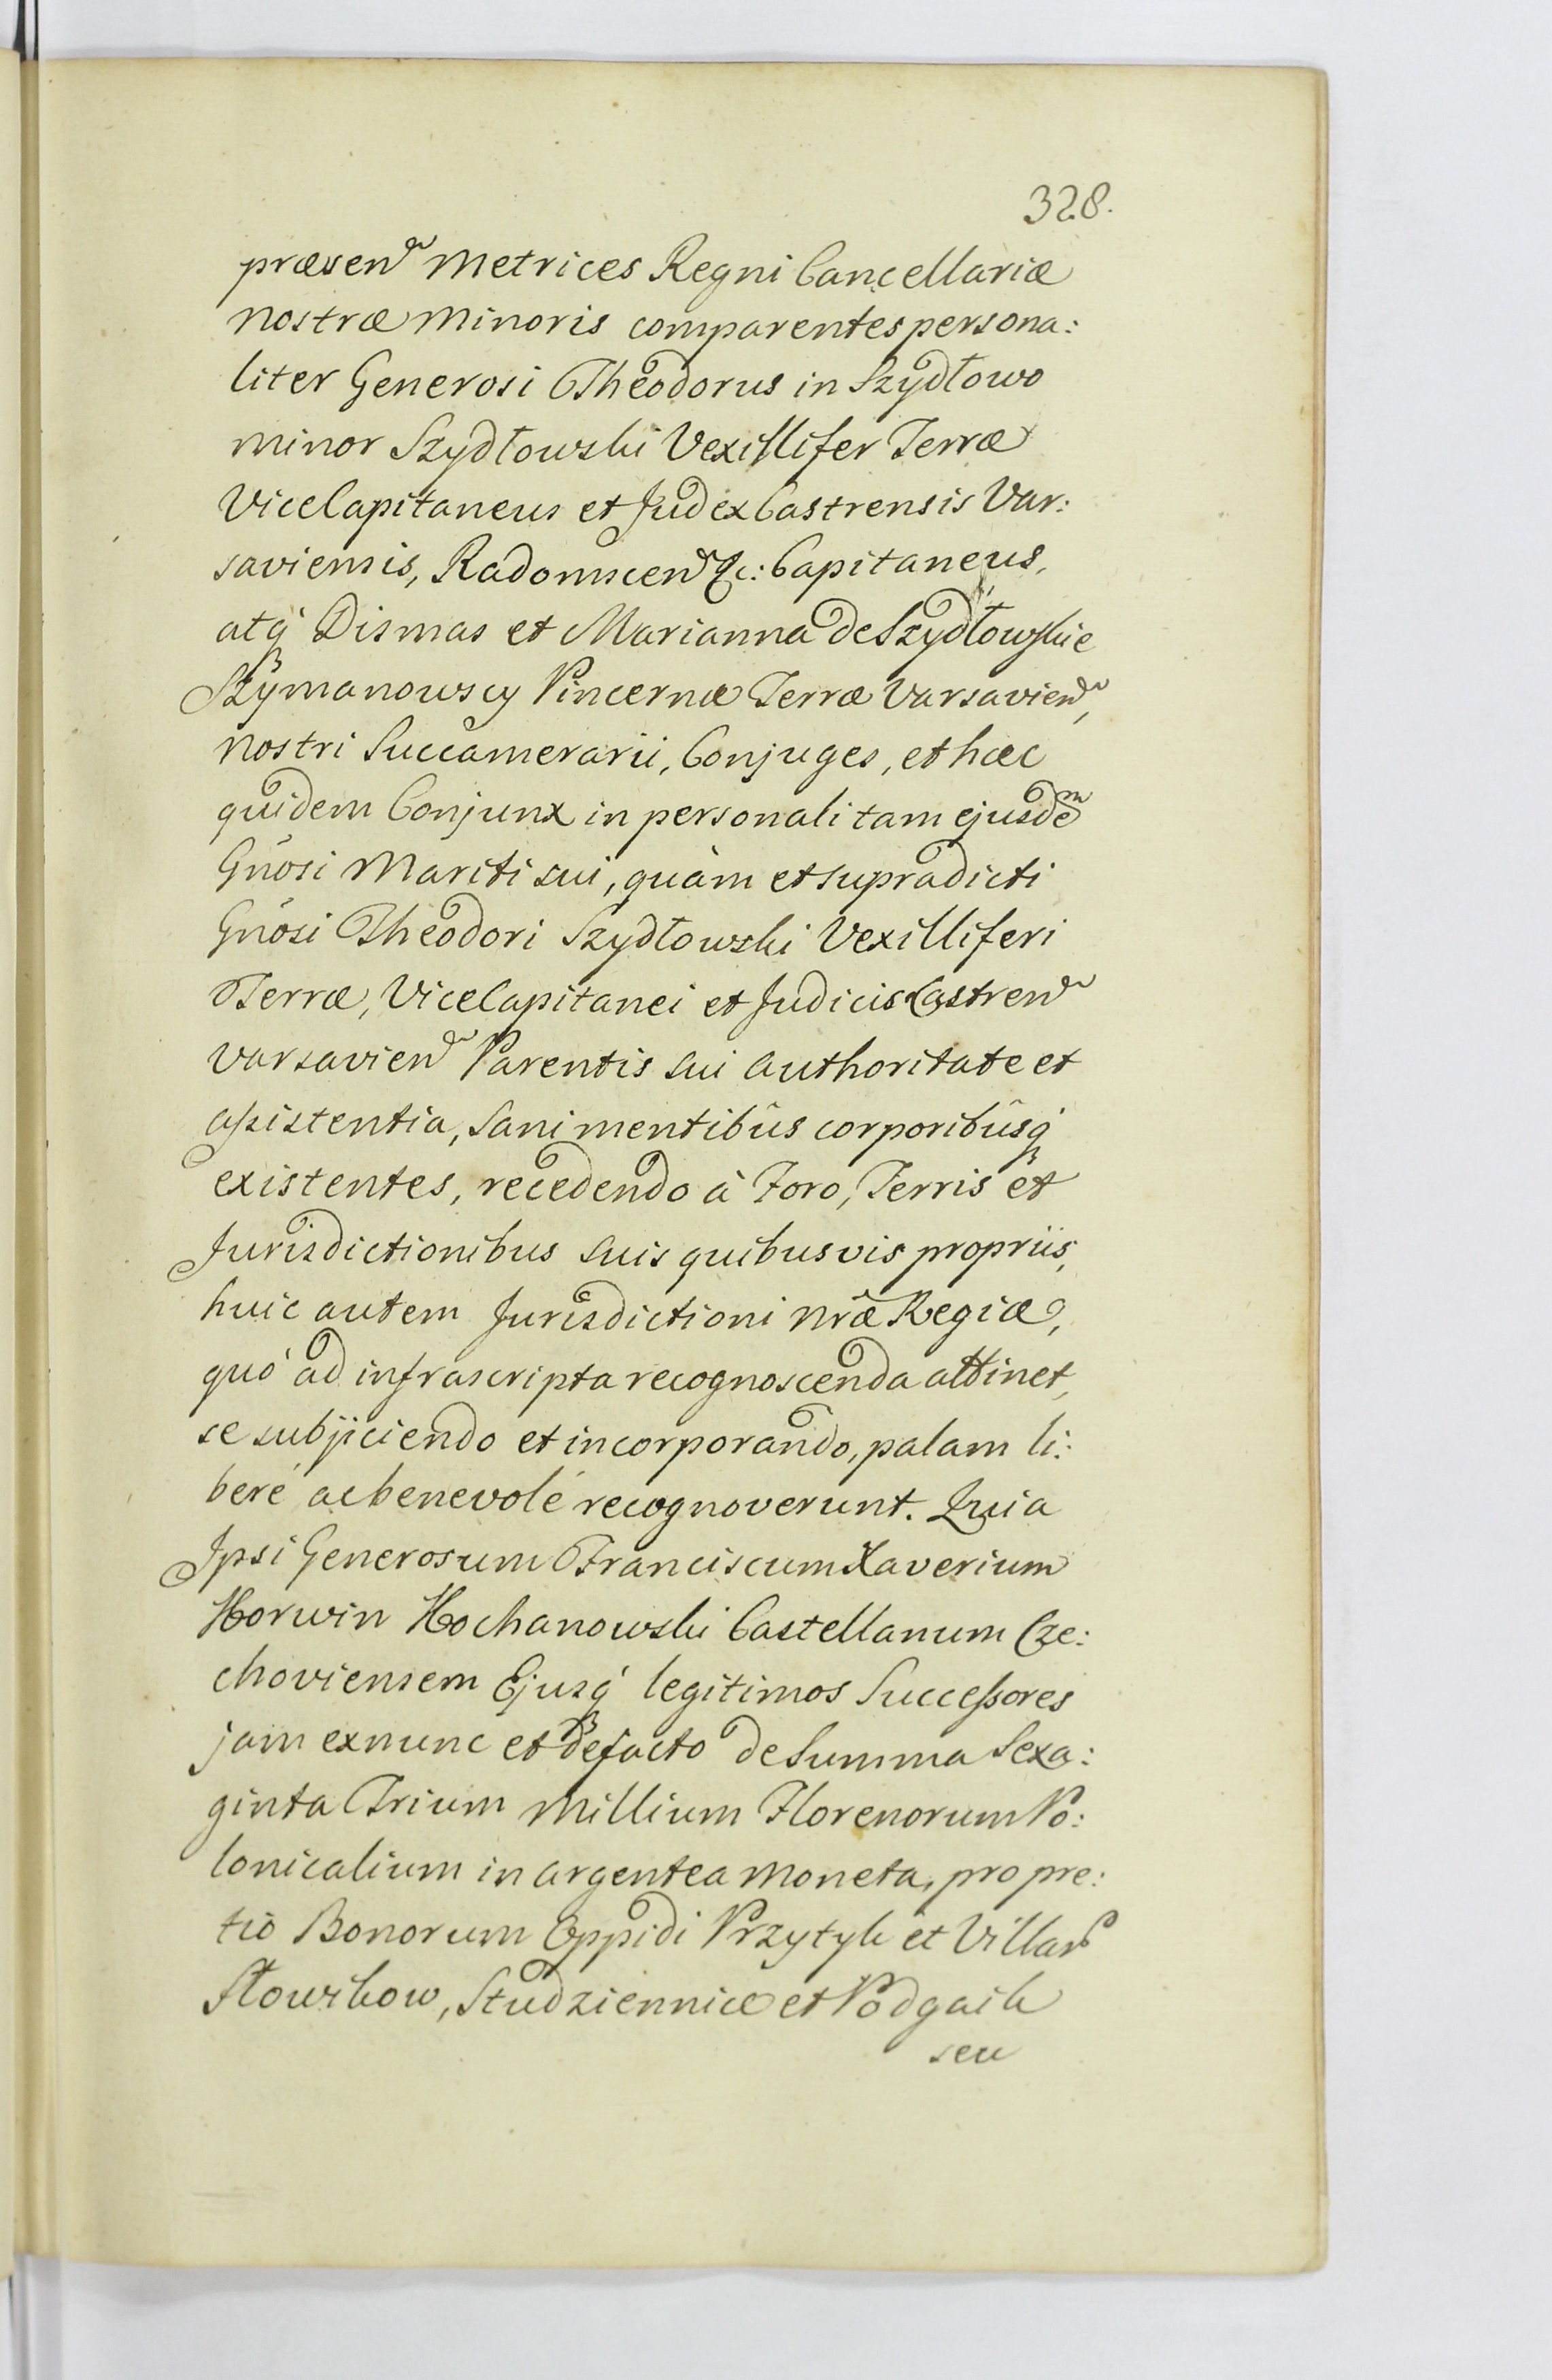 328.
præsen Metrices Regni Cancellariæ
nostræ Minoris comparentes persona:
liter Generosi Theodorus in Szydłowo
minor Szydłowski Vexillifer Terræ
ViceCapitaneus et Judex Castrensis Var:
saviensis, Radomscen &c: Capitaneus,
atq́ Dismas et Marianna de Szydłowskie
Szymanowscy Pincernæ Terræ Varsavien,
Nostri Succamerarii, Conjuges, et hæc
quidem Conjunx in personali tam ejusdem
Gnosi Mariti sui, quàm et supradicti
Gnosi Theodori Szydłowski Vexilliferi
Terræ, ViceCapitanei et Judicis Castren
Varsavien Parentis sui Authoritate et
Assistentia, sani mentibûs corporibûsq́
existentes, recedendo à Foro, Terris et
Jurisdictionibus suis quibusvis propriis,
huic autem Jurisdictioni Nræ Regiæ,
quó ad infrascripta recognoscenda attinet,
se subjiciendo et incorporando, palam li:
beré ac benevolé recognoverunt. Quia
Ipsi Generosum Franciscum Xaverium
Korwin Kochanowski Castellanum Cze:
choviensem Ejusq́ legitimos Successores
jam exnunc et defacto de Summa Sexa:
ginta Trium Millium Florenorum Po:
lonicalium in argentea Moneta, pro pre:
tio Bonorum Oppidi Przytyk et Villar
Słowikow, Studziennice et Podgaik
seu